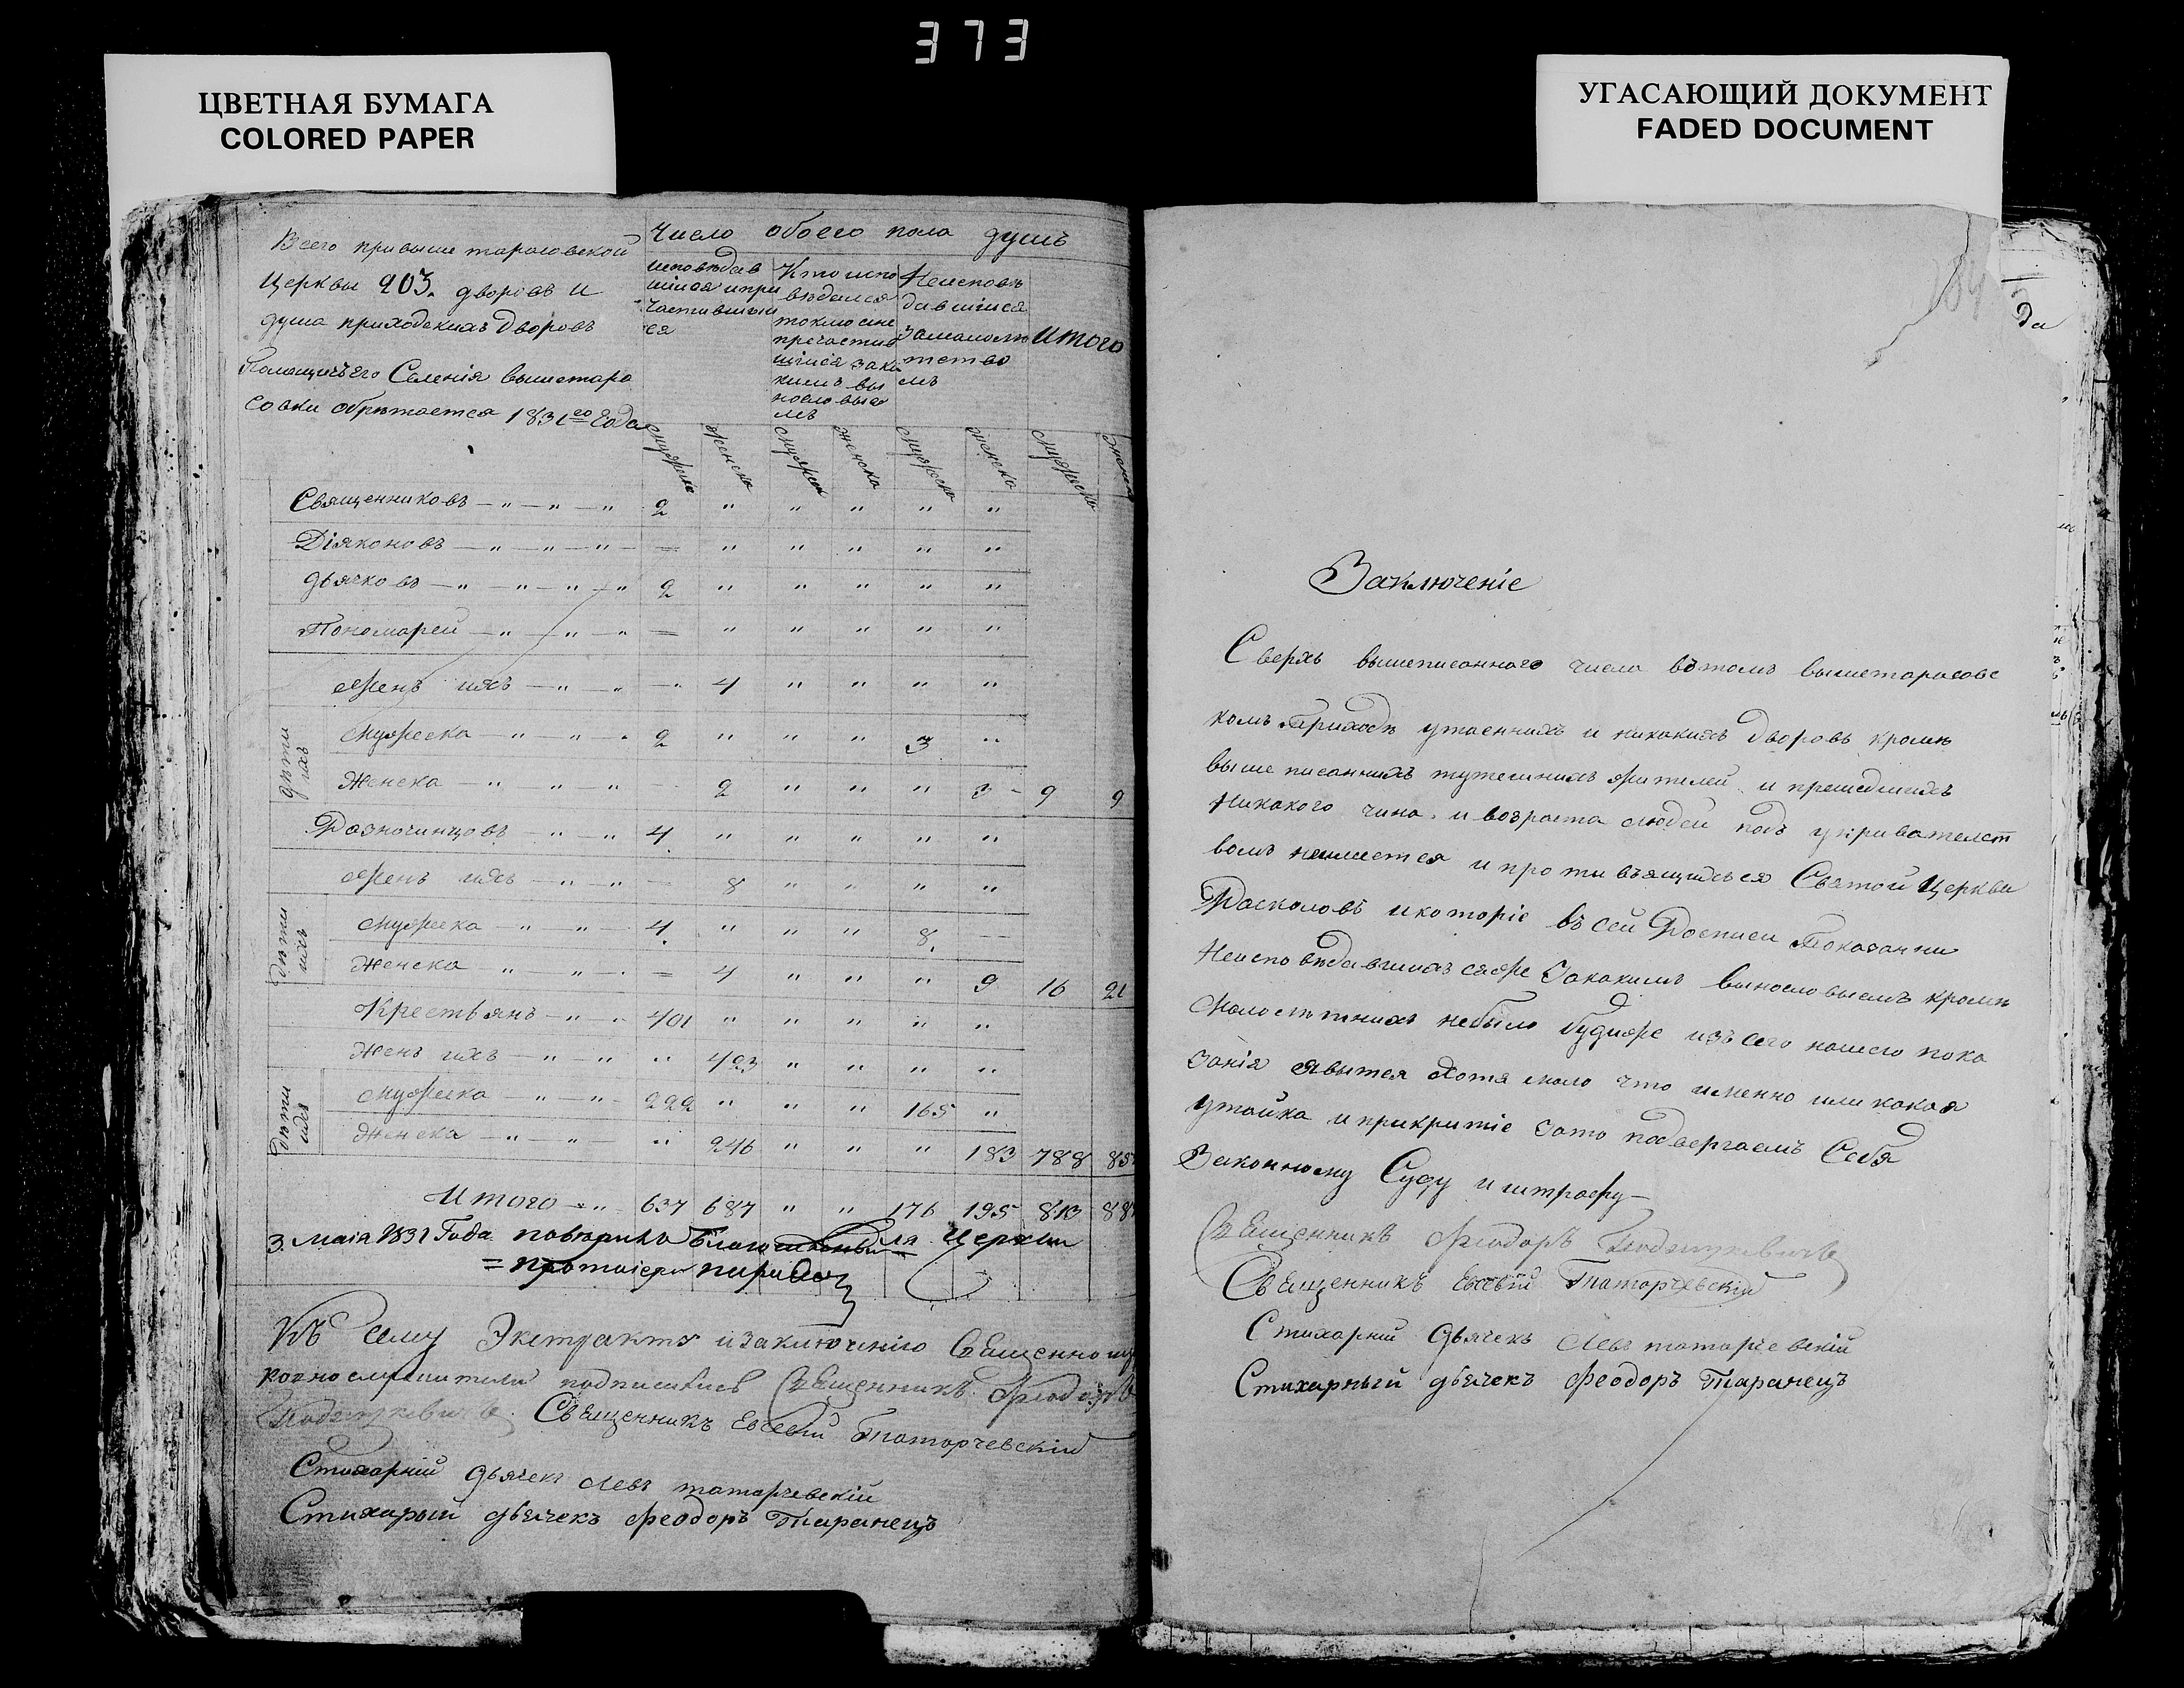 373
ЦВЕТНАЯ БУМАГА
COLORED PAPER
УГАСАЮЩИЙ ДОКУМЕНТ
FADED DOCUMENT
Всего при вышетарасовской
Церкви 203. дворовъ и
душа приходскихъ дворовъ
Помещичьего Селенія вышетара
совки обретается 1831го Года
Число обоего пола душъ
исповедав
шіися и при
частившіи
ся
Кто испо
ведался
токмо а не
причастив
шіися за ка
кимъ вы
нословые
мъ
Неиспове
давшіися
за малоле
тство
мъ
Итого
мужеска женска мужеска женска мужеска женска мужеска женска
Священниковъ — " — " — " 2 " " " " "
Діяконовъ — " — " — " — = " " " " "
дьячковъ — " — " — " — " 2 " " " " "
Пономарей — " — " — " = " " " " "
Женъ ихъ — " — " — " 4 " " " "
дети ихъ
Мужеска — " — " 2 " " " 3 "
Женска — " " " — 2 " " " 3 9 9
Разночинцовъ — " — " 4 " " " " "
Женъ ихъ — " — " — 8 " " " "
дети ихъ
Мужеска — " — " — 4. " " " 8. —
Женска " " = 4 " " " 9 16 21
Крестьянъ — " 401 " " " " "
Женъ ихъ — " — " " 423 " " " "
дети ихъ
Мужеска — " — " 222 " " " 165 "
Женска — " — " — " 246 " " " 183 788 85
Итого — " 637 687 " " 176 195 813 88
3. Маія 1831 Года
Къ сему Экстракту и заключенію Священноцер
ковнослужители подписались Священникъ Феодоръ
Священникъ Евсевій Татарчевскій
Стихарній дьячекъ Левъ татарчевскій
Стихарый дьячекъ Феодоръ Таранецъ
да
Заключеніе
Сверхъ вышеписаннаго числа въ томъ вышетарасовс
комъ Приходе утаенныхъ и никакихъ дворовъ кроме
выше писаннихъ тутешнихъ жителей и прешедшихъ
Никакого чина и возраста людей подъ укривателст
вомъ неимеется и противящихся Святой Церкви
Расколовъ и которіе въ сей Росписи Показанни
Неисповедавшихъ ся же За какимъ вынословыемъ кроме
Малолетнихъ небыло будиже изъ сего нашего пока
занія явытся Хотя мало что именно или какая
утайка и прикритіе зато подвергаемъ Себя
Законному Суду и штрафу —
Священникъ Феодоръ
Священникъ Евсевій Татарчевскій
Стихарній Дьячекъ Левъ татарчевскій
Стихарный дьячекъ Феодоръ Таранецъ